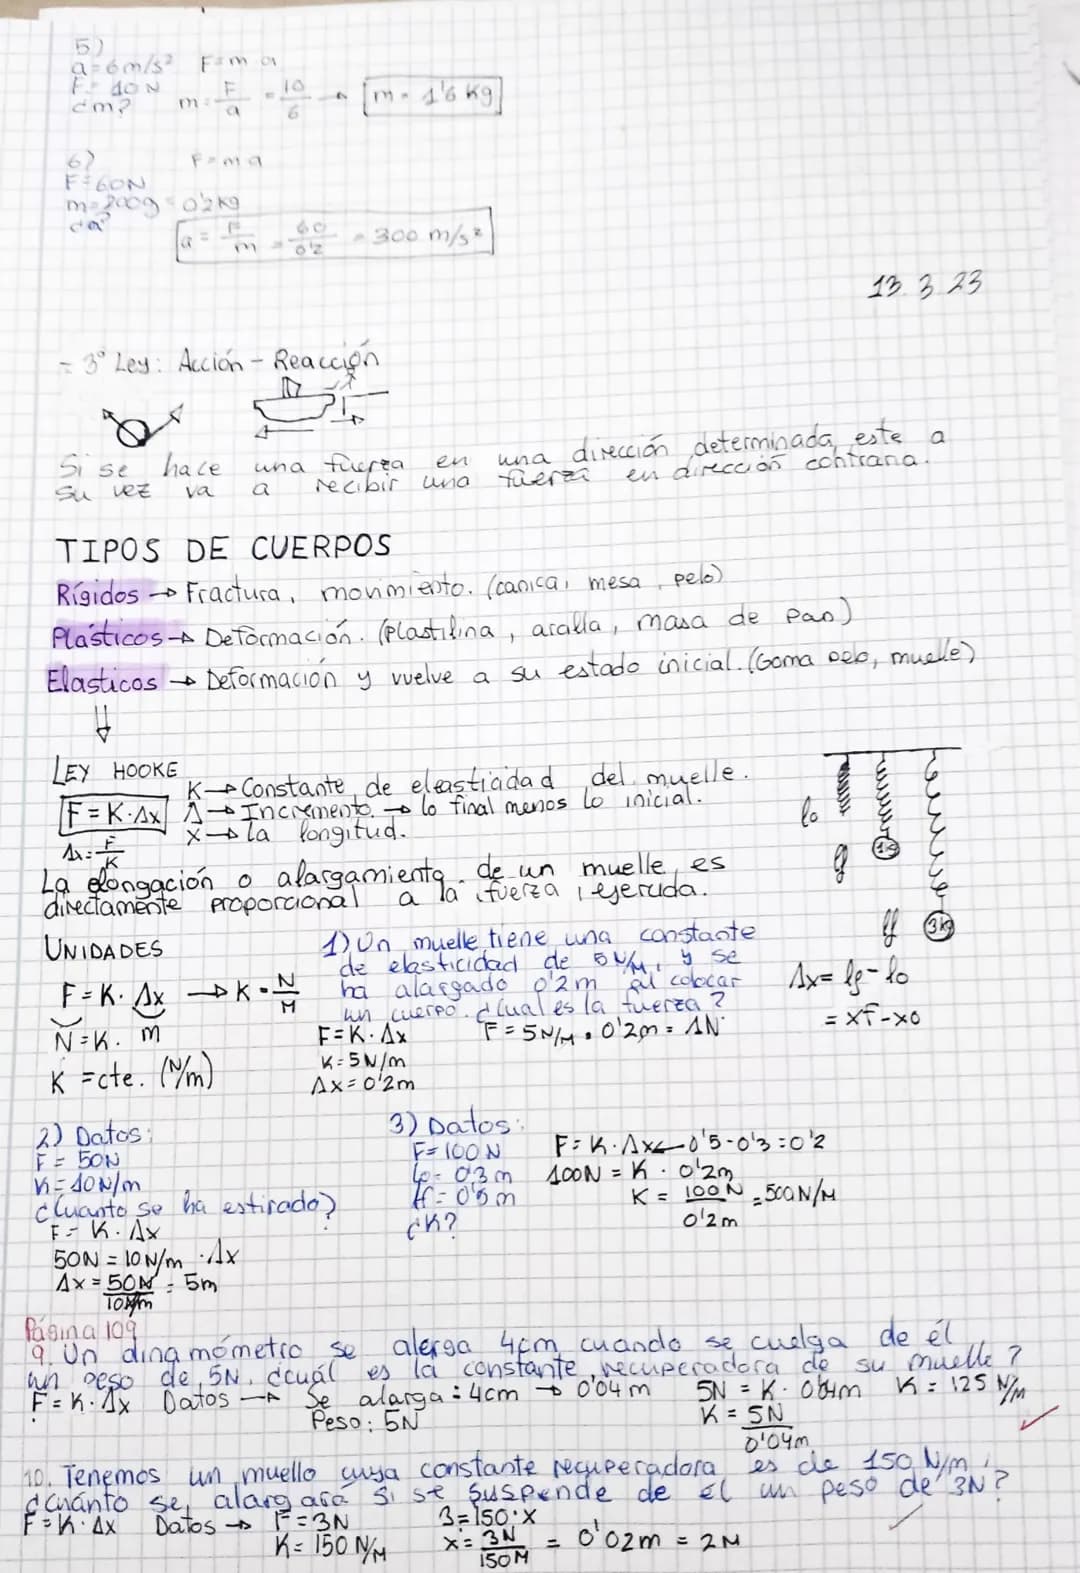 5)
a=6m/s² F=m·a
F=10N
¿m? m=F/a =10/6 → m=1'6 Kg
6) F=m·a
F=60N
m=200g=0'2kg
¿a? a=F/m=60/0'2=300 m/s²
13.3.23
- 3º Ley: Acción - Reacción
Si se hace una fuerza en una dirección determinada, este a
su vez va a recibir una fuerza en dirección contraria.
TIPOS DE CUERPOS
Rígidos → Fractura, movimiento. (canica, mesa, pelo)
Plásticos → Deformación. (Plastilina, arcilla, masa de pan)
Elasticos → Deformación y vuelve a su estado inicial. (Goma pelo, muelle)
LEY HOOKE
F=K·Δx
Δx=F/K
K→ Constante de eleasticidad del muelle.
Δ→ Incremento. → lo final menos lo inicial.
X→ la longitud.
lo
1kg
lf
3kg
Δx= lf-lo
= xF-xo
La elongación o alargamiento de un muelle, es
directamente proporcional a la fuerza ejercida.
UNIDADES
F=K·Δx → K=N/M
N=K·m
K=cte. (N/m)
1) Un muelle tiene una constante
de elasticidad de 5N/M, y se
ha alargado 0'2m al colocar
un cuerpo. ¿Cual es la fuerza?
F=K·Δx F=5N/M·0'2m=1N
K=5N/m
Δx=0'2m
2) Datos:
F=50N
K=10N/m
¿Cuanto se ha estirado?
F=K·Δx
50N=10N/m·Δx
Δx=50N/10N/m=5m
3) Datos:
F=100N
lo=0'3m
lf=0'5m
¿K?
F=K·Δx ← 0'5-0'3=0'2
100N=K·0'2m
K=100N/0'2m=500N/M
Página 109
9. Un dinamómetro se alarga 4cm cuando se cuelga de él
un peso de 5N. ¿cuál es la constante recuperadora de su muelle?
F=K·Δx Datos → Se alarga: 4cm → 0'04m 5N=K·0'04m K=125 N/m
Peso: 5N K=5N/0'04m
10. Tenemos un muello cuya constante recuperadora es de 150 N/m,
¿cuánto se alargará si se suspende de él un peso de 3N?
F=K·Δx Datos → F=3N 3=150·x
K=150 N/M x=3N/150M = 0'02m = 2M